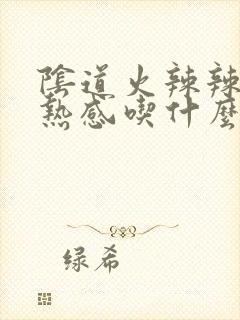 陰道火辣辣
熱感喫什麼
绿希